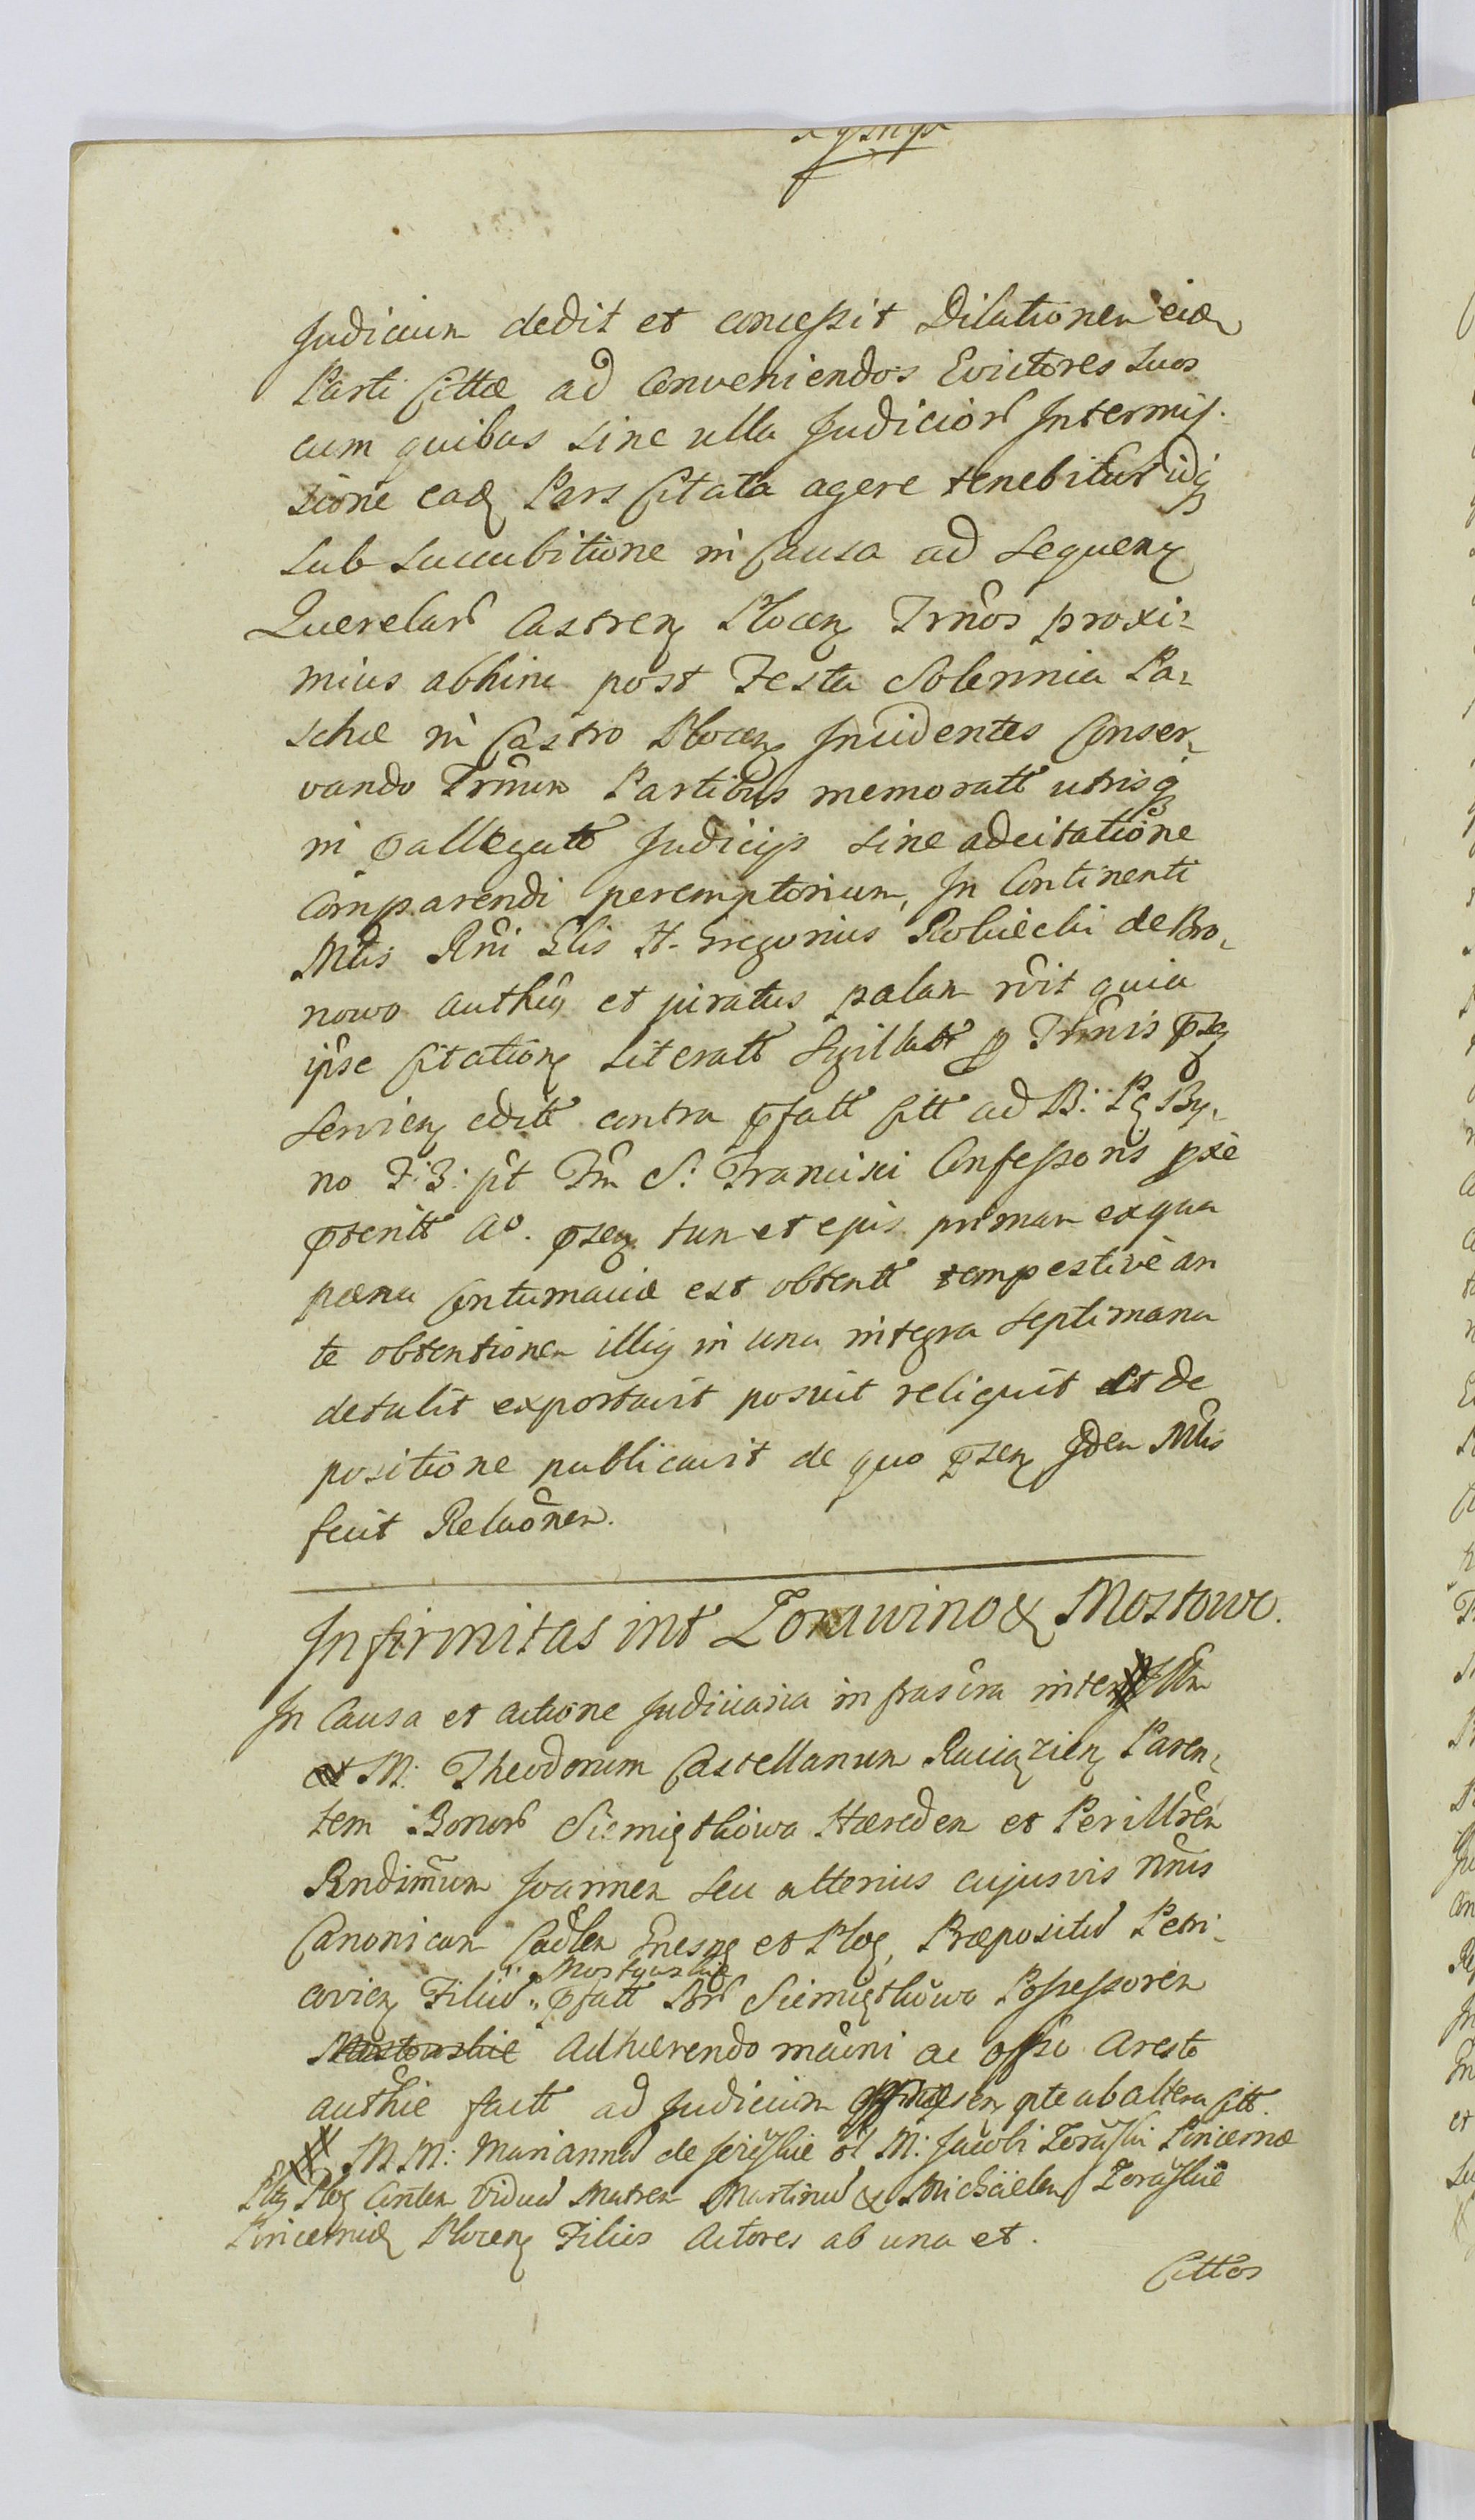 Judicium dedit et concessit Dilationem eid
Parti Cittae ad Conveniendos Evictores Suos
cum quibus sine ulla Judicior Intermis-
sione ead Pars Citata agere tenebitur idq
sub succubitione in Causa ad sequen
Querelar Castren Plocen Trnos proxi-
mius abhinc post Festa Solennia Pa-
schae in Castro Plocen Incidentes Conser-
vando Trnum Partibus memoratt utrisq
in pallegatt Judicijs sine adcitatione
Comparendi peremptorium, In Continenti
Mtis Rni Glis H. Gregorius Robiecki de Bro-
nowo authen et juratus palam rcit quia
ipse Citation Literatt Sigillatt p Trnis psn
servien editt contra pfatt Citt ad B: Pg By-
no F: 3: pt Fm S. Francisci Confessoris pxe
pteritt Ao. psen tum et ejus primam ex qua
paena Contumaciae est obtentt tempestive an
te obtentionem illig in una integra septimana
detulit exportavit posuit reliquit et de
positione publicavit de quo psen Idem Mtis
fecit Relaonem.
Infirmitas int Zorawino & Mostowo.
In Causa et actione Judiciaria infrascra inter Illm
et M: Theodorum Castellanum Raciązien Paren-
tem Bonor Siemiątkowa Haeredem et Perillrem
Rndimum Joannem seu alterius cujusvis nnis
Canonicum Cadlem Gnesn et Ploc, Praepositu Petri-
covien Filiu Mostowskie pfatt Bor Siemiątkowa Possessorem
Mostowskie Adhaerendo mauni ac offso Aresto
authie factt ad Judicium psen pte ab altera Citt.
M M: Mariannă de ol M: Jacobi Zorawski Pincernae
Ploc Conten Viduă Matrem Martinu & Michäelem Zorawskie
Pincernid Plocen Filios Actores ab una et.
Cittos